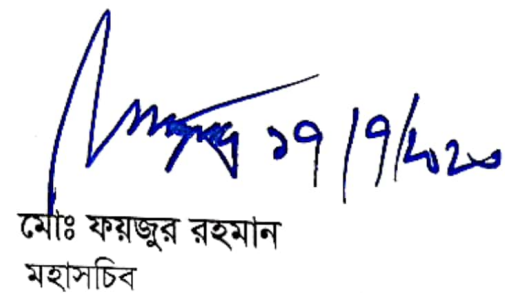 ১৭/৭/২০২০
মোঃ ফয়জুর রহমান
মহাসচিব